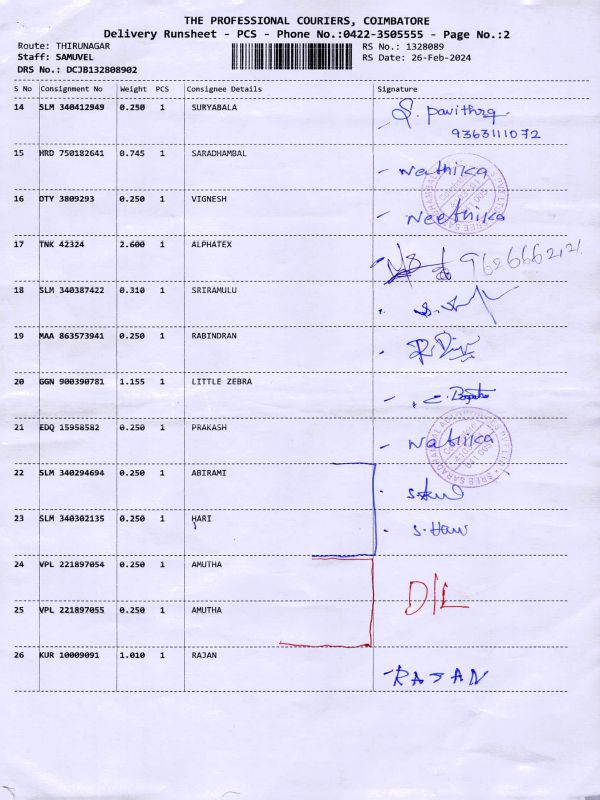 THE PROFESSIONAL COURIERS, COIMBATORE
Delivery Runsheet - PCS - Phone No.:0422-3505555 - Page No.:2
Route: THIRUNAGAR RS No.: 1328089
Staff: SAMUVEL RS Date: 26-Feb-2024
DRS No.: DCJB132808902
S No Consignment No Weight PCS Consignee Details Signature
14 SLM 340412949 0.250 1 SURYABALA S. Pavithra
9363111072
15 HRD 750182641 0.745 1 SARADHAMBAL - Nathika
16 DTY 3809293 0.250 1 VIGNESH - Neethika
17 TNK 42324 2.600 1 ALPHATEX
18 SLM 340387422 0.310 1 SRIRAMULU
19 MAA 863573941 0.250 1 RABINDRAN
20 GGN 900390781 1.155 1 LITTLE ZEBRA
21 EDQ 15958582 0.250 1 PRAKASH - Nathika
22 SLM 340294694 0.250 1 ABIRAMI
23 SLM 340302135 0.250 1 HARI - S. Hari
24 VPL 221897054 0.250 1 AMUTHA D/L
25 VPL 221897055 0.250 1 AMUTHA
26 KUR 10009091 1.010 1 RAJAN - RAJAN